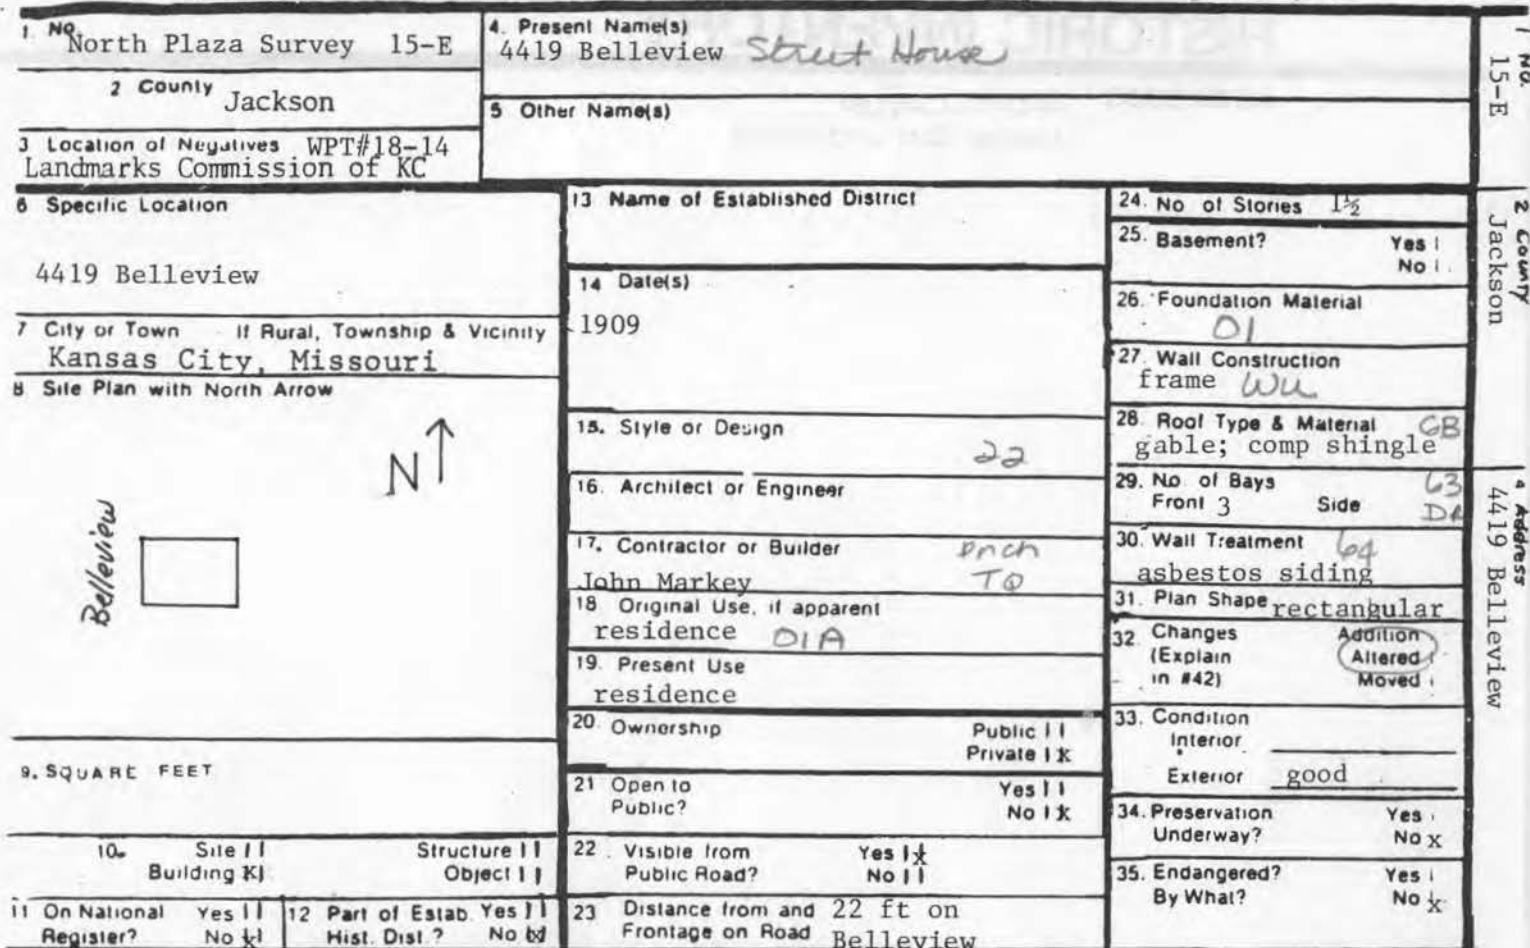 1. No. North Plaza Survey 15-E
2 County Jackson
3 Location of Negatives WPT#18-14
Landmarks Commission of KC
4. Present Name(s)
4419 Belleview Street House
5 Other Name(s)
6 Specific Location
4419 Belleview
7 City or Town If Rural, Township & Vicinity
Kansas City, Missouri
8 Site Plan with North Arrow
N
Belleview
9. SQUARE FEET
10. Site Structure
Building X Object
11 On National Yes
Register? No x
12 Part of Estab. Yes
Hist. Dist.? No x
13 Name of Established District
14 Date(s)
1909
15. Style or Design
22
16. Architect or Engineer
17. Contractor or Builder
Pnch
John Markey TQ
18 Original Use, if apparent
residence 01A
19. Present Use
residence
20. Ownership Public
Private x
21 Open to Yes
Public? No x
22 Visible from Yes x
Public Road? No
23 Distance from and 22 ft on
Frontage on Road Belleview
24. No of Stories 1½
25. Basement? Yes
No
26. Foundation Material
01
27. Wall Construction
frame WU
28. Roof Type & Material GB
gable; comp shingle
29. No. of Bays 63
Front 3 Side
30. Wall Treatment 64
asbestos siding
31. Plan Shape rectangular
32. Changes Addition
(Explain Altered
in #42) Moved
33. Condition
Interior
Exterior good
34. Preservation Yes
Underway? No x
35. Endangered? Yes
By What? No x
1 No.
15-E
2 County
Jackson
4 Address
4419 Belleview